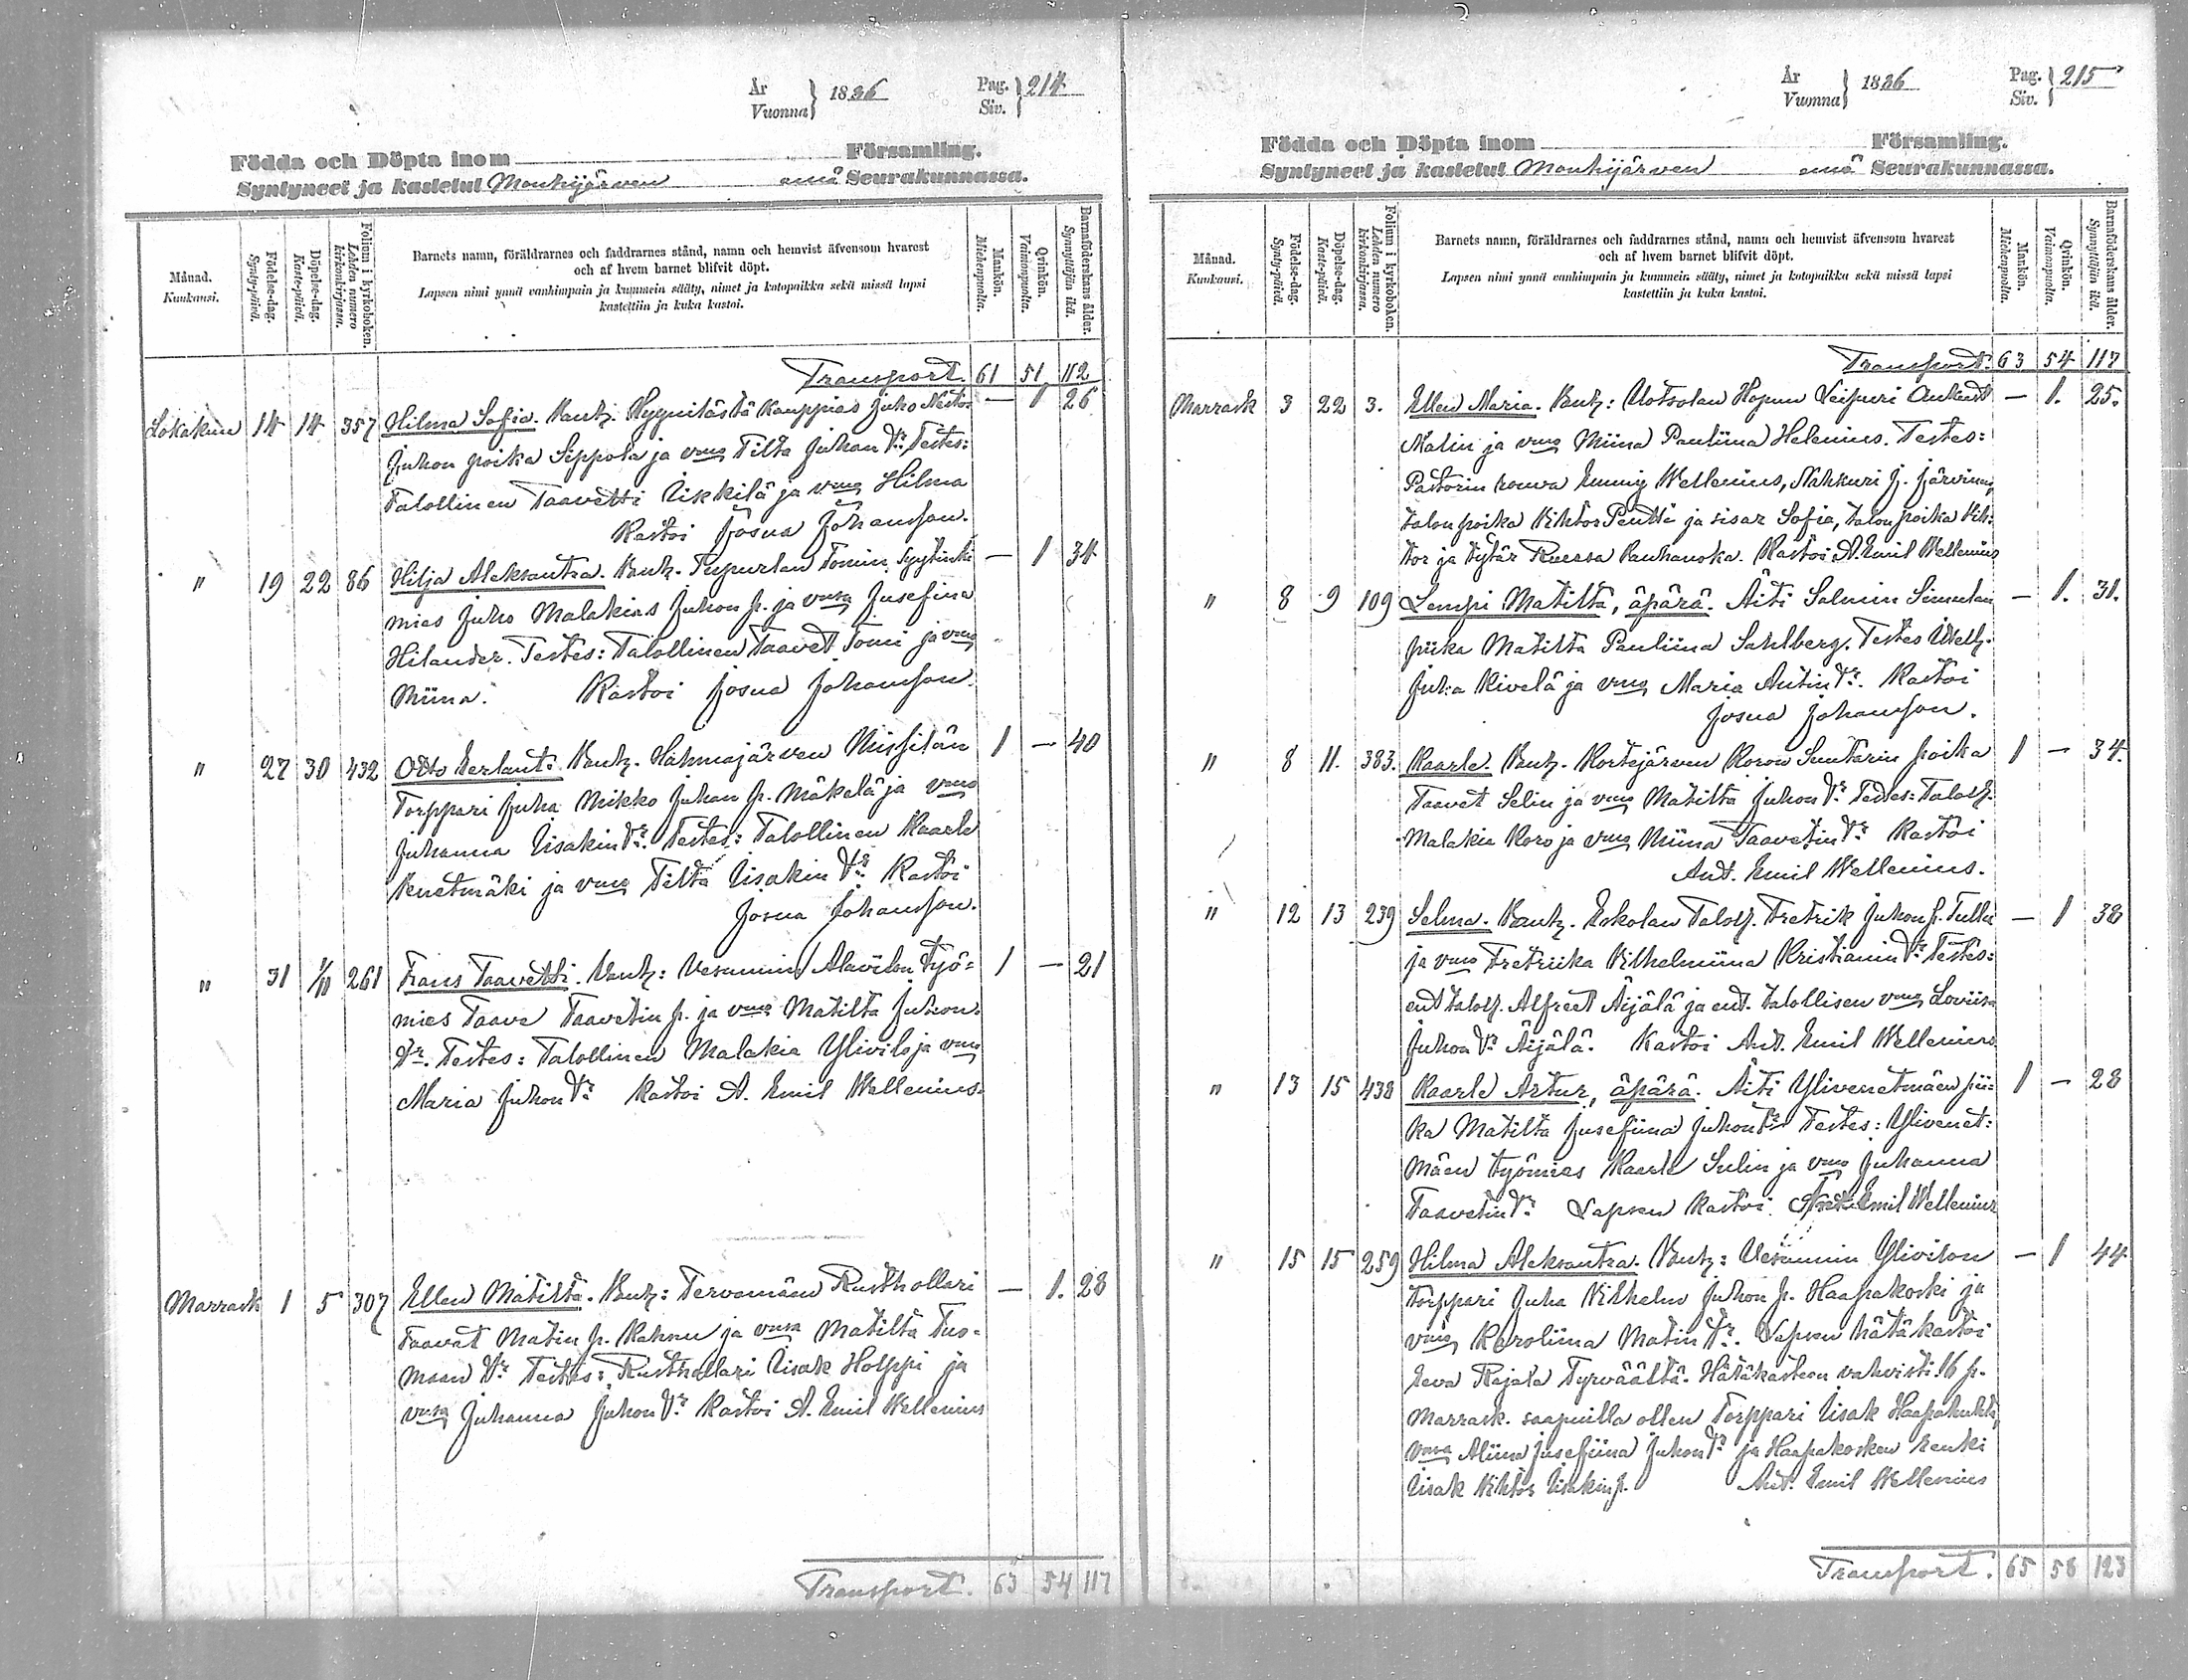 År
Vuonna } 1886
Pag.
Siv. } 214
Födda och Döpta inom Församling.
Syntyneet ja kastetut Mouhijärven emä Seurakunnassa.
Månad.
Kuukausi.
Födelse-dag.
Synty-päivä.
Döpelse-dag.
Kaste-päivä.
Folium i kyrkoboken.
Lehden numero kirkonkirjassa.
Barnets namn, föräldrarnes och faddrarnes stånd, namn och hemvist äfvensom hvarest
och af hvem barnet blifvit döpt.
Lapsen nimi ynnä vanhimpain ja kummein sääty, nimet ja kotopaikka sekä missä lapsi
kastettiin ja kuka kastoi.
Mankön.
Miehenpuolta.
Qvinkön.
Vaimonpuolta.
Barnaföderskans ålder.
Synnyttäjän ikä.
Transport. 61 51 112
Lokakuu 14 14 357 Hilma Sofia. Vanh. Hyynilästä Kauppias Juho Nestor — 1 26
Juhon poika Seppola ja vmo Tilta Juhan tr. Testes:
Talollinen Taavetti Uskkilä ja vmo Hilma
Kastoi Josua Johansson.
" 19 22 86 Hilja Aleksantra. Vanh. Tupurlan Tomin Syytinki — 1 34
mies Juho Malakias Juhon p. ja vmsa Jusefina
Hilander. Testes: Talollinen Taavet Tomi ja vmo
Miina. Kastoi Josua Johansson.
" 27 30 432 Otto Verlant. Vanh. Hahmajärven Nissilän 1 — 40
Torppari Juha Mikko Juhan p. Mäkelä ja vmo
Juhanna Iisakin tr. Testes: Talollinen Kaarle
Venetmäki ja vmo Tilta Iisakin tr. Kastoi
Josua Johansson.
" 31 1/11 261 Frans Taavetti. Vanh: Vesunnin Alavilon työ= 1 — 21
mies Taave Taavetin p. ja vmo Matilta Juhon=
tr. Testes: Talollinen Malakia Ylivilo ja vmo
Maria Juhon tr. Kastoi A. Emil Wellenius.
Marrask 1 5 307 Ellen Matilta. Vanh: Tervamäen Rusthollari — 1. 28
Taavet Matin p. Rahnu ja vmsa Matilta Tuo=
maan tr. Testes: Rusthollari Iisak Holppi ja
vmsa Juhanna Juhon tr. Kastoi A. Emil Wellenius
Transport. 63 54 117
År
Vuonna } 1886
Pag.
Siv. } 215
Födda och Döpta inom Församling.
Syntyneet ja kastetut Mouhijärven emä Seurakunnassa.
Månad.
Kuukausi.
Födelse-dag.
Synty-päivä.
Döpelse-dag.
Kaste-päivä.
Folium i kyrkoboken.
Lehden numero kirkonkirjassa.
Barnets namn, föräldrarnes och faddrarnes stånd, namn och hemvist äfvensom hvarest
och af hvem barnet blifvit döpt.
Lapsen nimi ynnä vanhimpain ja kummein sääty, nimet ja kotopaikka sekä missä lapsi
kastettiin ja kuka kastoi.
Mankön.
Miehenpuolta.
Qvinkön.
Vaimonpuolta.
Barnaföderskans ålder.
Synnyttäjän ikä.
Transport. 63 54 117
Marrask 3 22 3. Ellen Maria. Vanh: Uotsolan Hopun Leipuri Aukust — 1. 25.
Malin ja vmo Miina Pauliina Helenius. Testes:
Pastorin rouva Emmy Wellenius, Nahkuri J. Järvinen,
talon poika Vihtor Pentti ja sisar Sofia, talon poika Vih=
tor ja tytär Ruessa Vanhanoka. Kastoi A. Emil Wellenius
" 8 9 109 Lempi Matilta, äpärä. Äiti Salmin Simulan — 1. 31.
piika Matilta Pauliina Sahlberg. Testes Itsell.
Juha Kivelä ja vmo Maria Antin tr. Kastoi
Josua Johansson.
" 8 11. 383. Kaarle. Vanh. Kortejärven Koron Suutarin poika 1 — 34.
Taavet Selin ja vmo Matilta Juhon tr. Testes: Taloll.
Malakia Koro ja vmo Miina Taavetin tr. Kastoi
Ant. Emil Wellenius.
" 12 13 239 Selma. Vanh. Eskolan Taloll. Fretrik Juhon p. Tulku — 1 38
ja vmo Fretriika Vilhelmiina Kristianin tr. Testes:
ent taloll. Alfreet Äijälä ja ent. talollisen vmo Loviisa
Juhon tr. Äijälä. Kastoi Ant. Emil Wellenius
" 13 15 438 Kaarle Artur, äpärä. Äiti Ylivenetmäen pii= 1 — 28
ka Matilta Jusefiina Juhon tr. Testes: Ylivenet=
mäen työmies Kaarle Sulin ja vmo Juhanna
Taavetin tr. Lapsen kastoi Ant. Emil Wellenius
" 15 15 259 Hilma Aleksantra. Vanh: Vesunnin Ylivilon — 1 44
torppari Juha Vilhelm Juhon p. Haapakoski ja
vmo Karoliina Matin tr. Lapsen hätäkastoi
Eeva Rajala Tyrväältä. Hätäkasteen vahvisti 16 p.
Marrask. saapuilla ollen Torppari Iisak Haapahuhta,
vmsa Aliina Jusefiina Juhon tr. ja Haapakosken renki
Iisak Vihtor Iisakin p. Ant. Emil Wellenius
Transport. 65 58 123